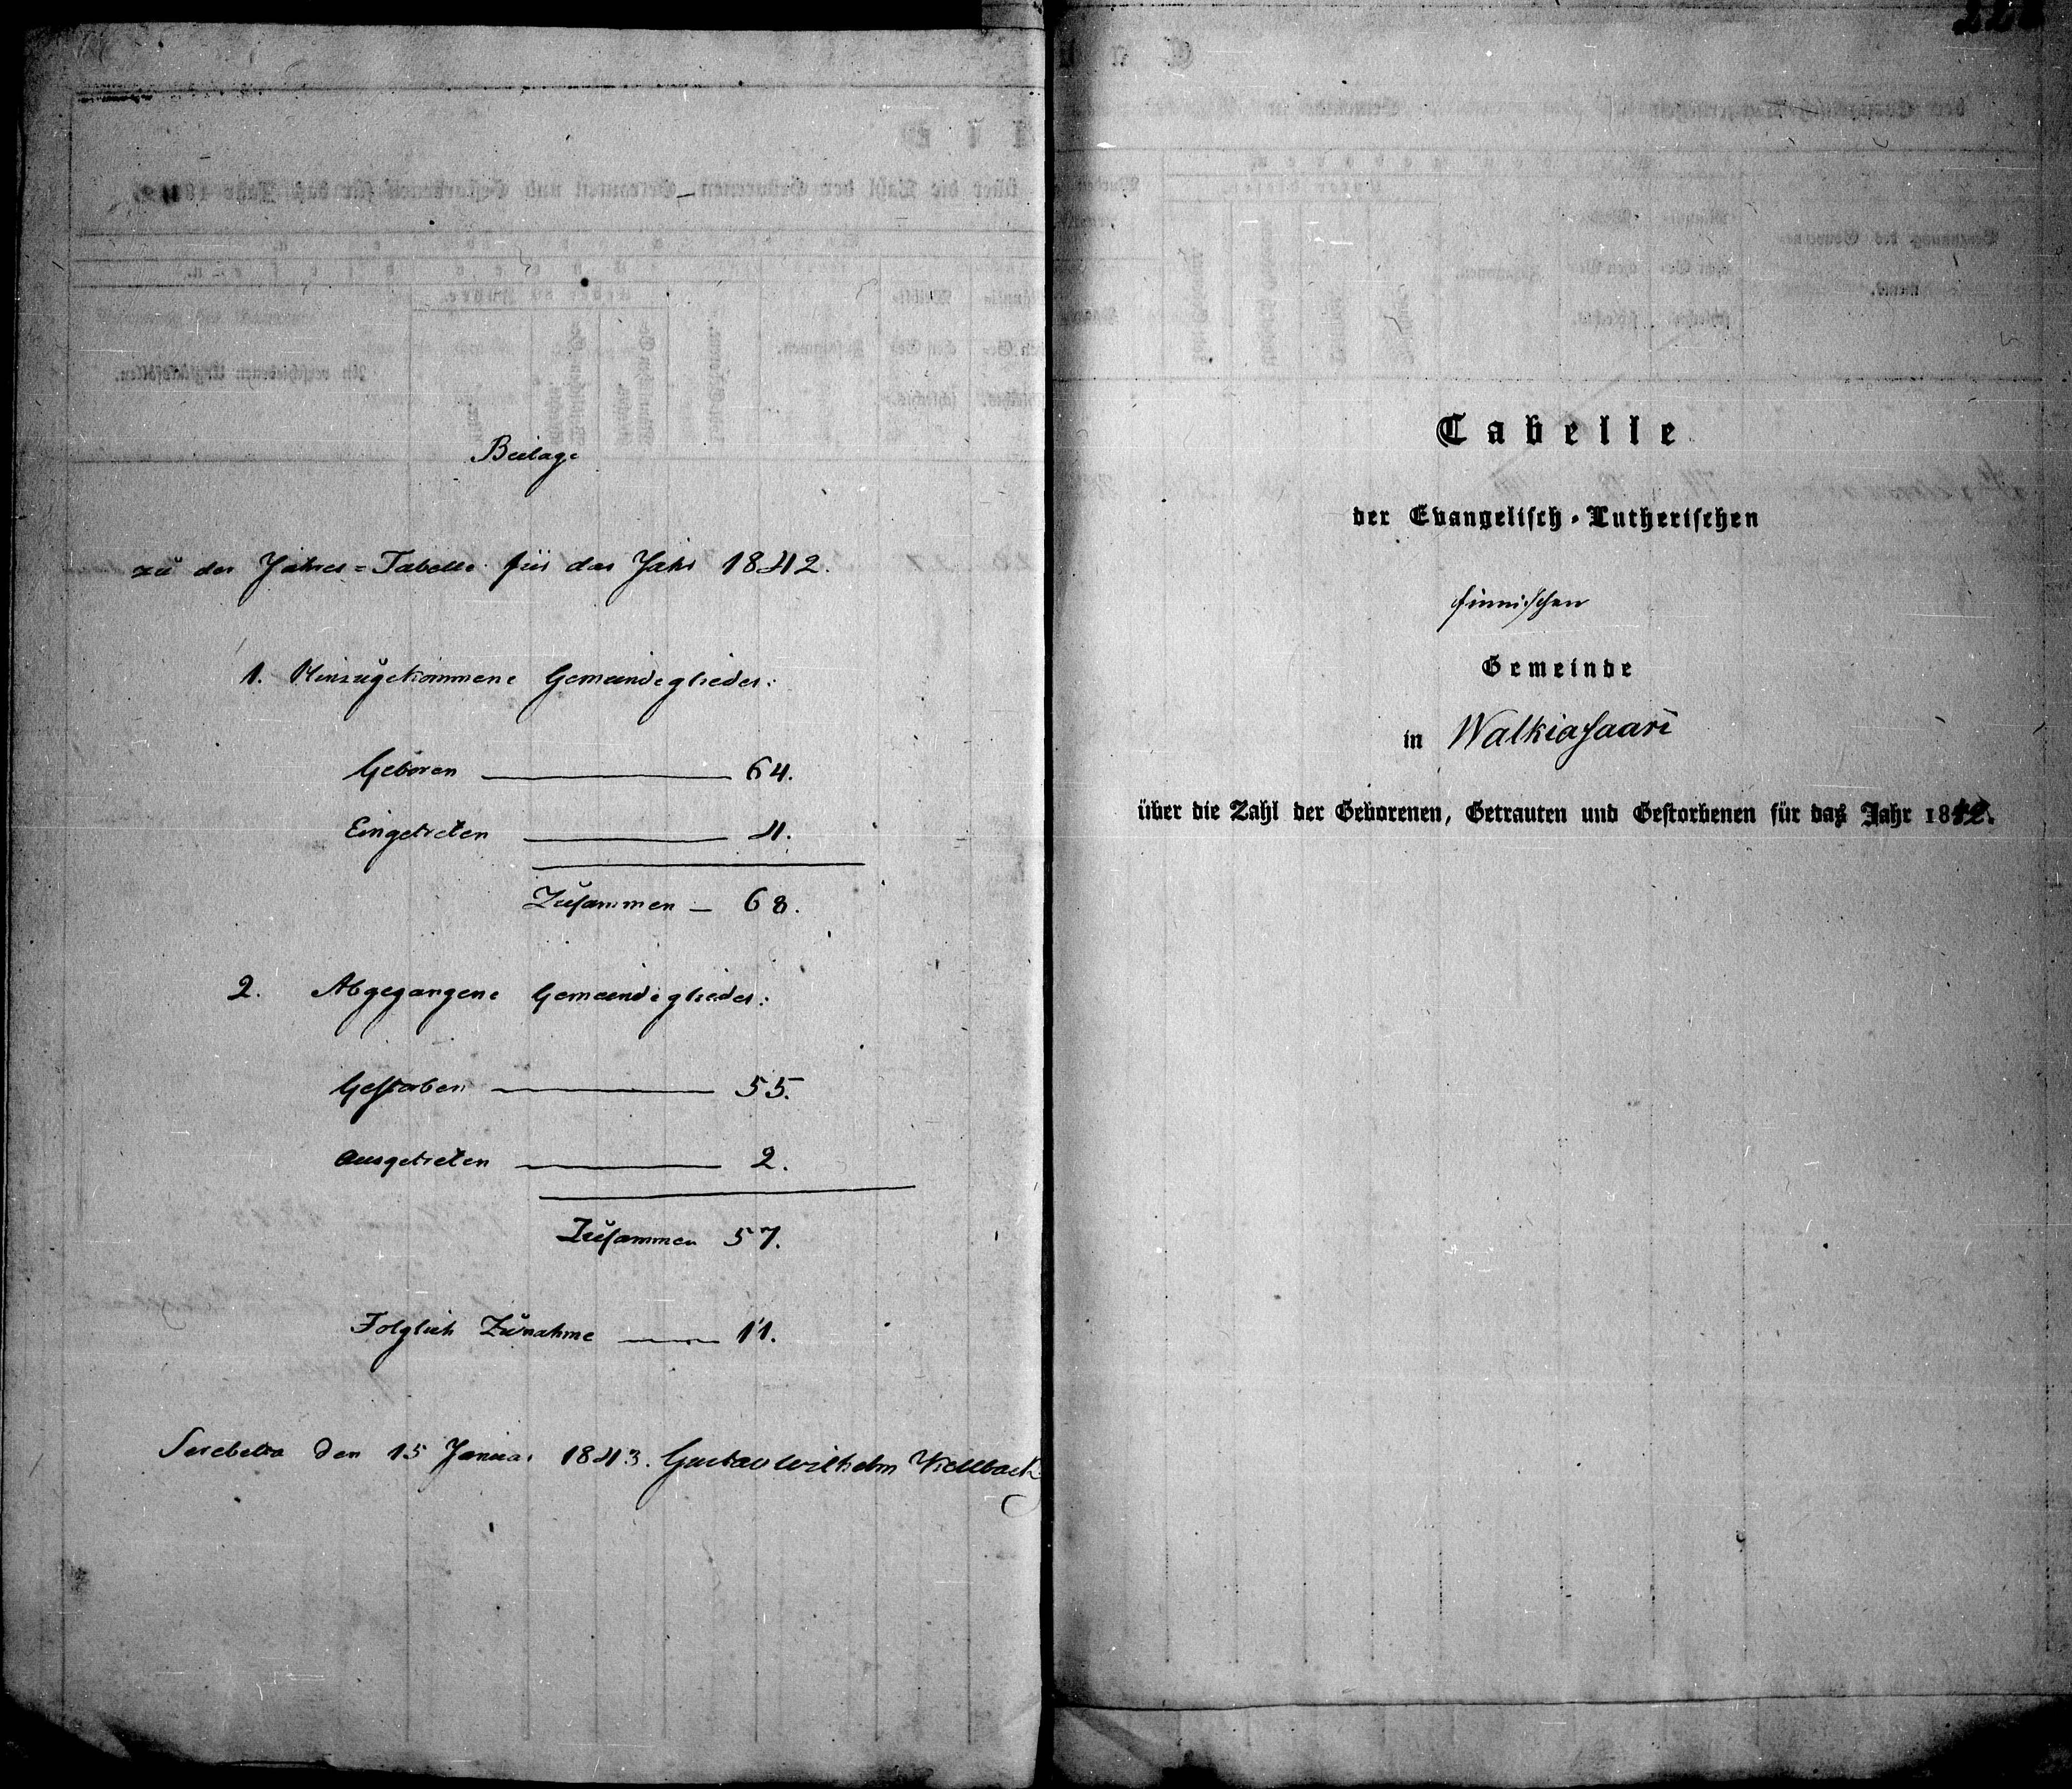 Beilage
zu der Jahres=Tabelle für das Jahr 1842.
1. Hinzugekommene Gemeindeglieder:
Geboren 64.
Eingetreten 4.
Zusammen — 68.
2. Abgegangene Gemeindeglieder:
Gestorben 55.
Ausgetreten 2.
Zusammen 57.
Folglich Zunahme 11.
den 15 Januar 1843. Gustav Wilhelm
Tabelle
der Evangelisch-Lutherischen
finnischen
Gemeinde
in Walkiasaari
über die Zahl der Geborenen, Getrauten und Gestorbenen für das Jahr 1842.